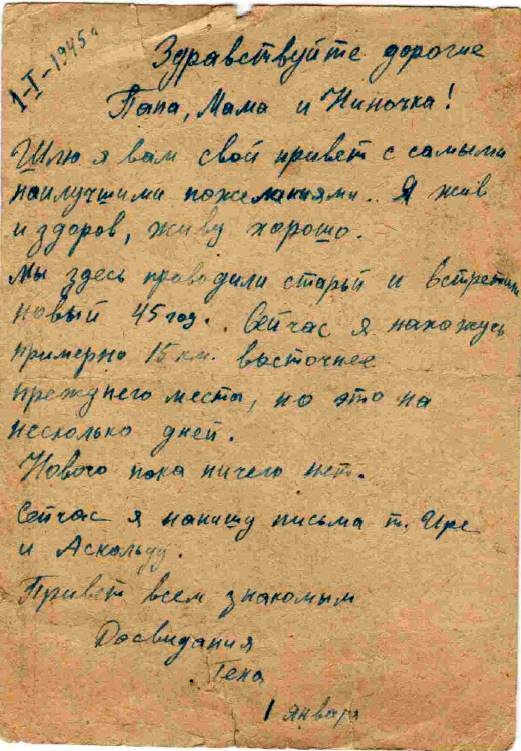 1-I-1945 г
Здравствуйте дорогие
Папа, Мама и Ниночка!
Шлю я вам свой привет с самыми
наилучшими пожеланиями. Я жив
и здоров, живу хорошо.
Мы здесь проводили старый и встретили
новый 45 год. Сейчас я нахожусь
примерно 15 км. восточнее
прежнего места, но это на
несколько дней.
Нового пока ничего нет.
Сейчас я напишу письма т. Ире
и Аскольду.
Привет всем знакомым
Досвидания
Гена
1 января